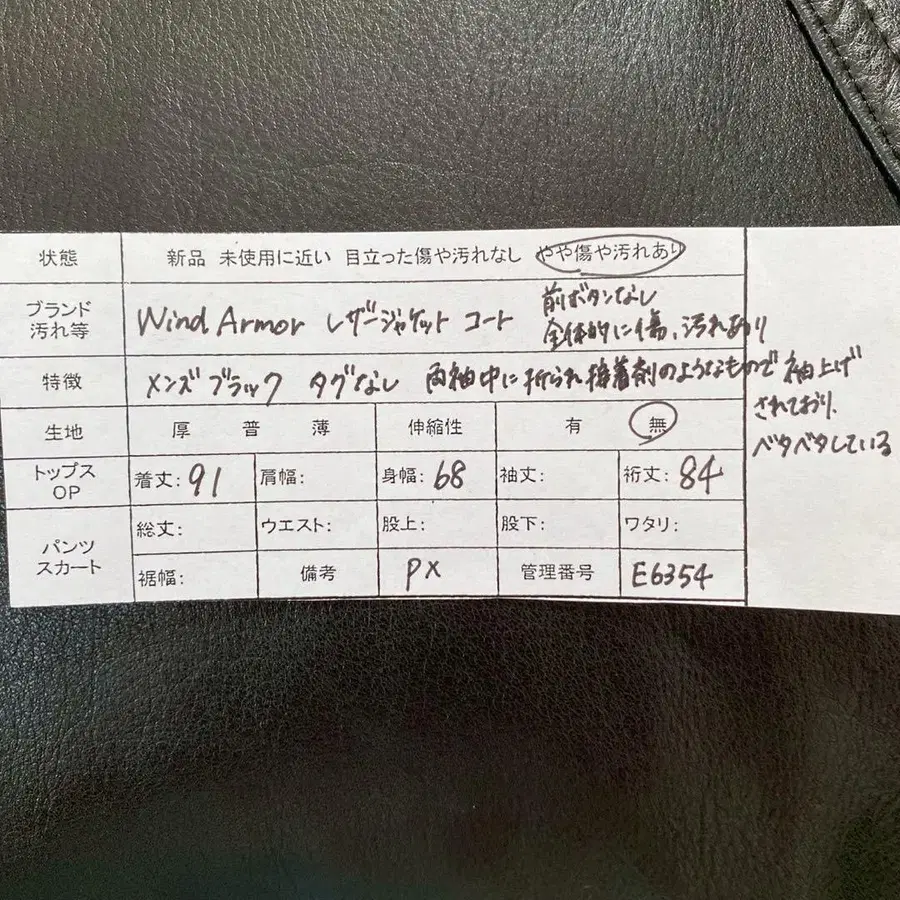 状態 新品 未使用に近い 目立った傷や汚れなし やや傷や汚れあり
ブランド 汚れ等 Wind Armor レザージャケット コート 前ボタンなし
全体的に傷、汚れあり
特徴 メンズ ブラック タグなし 両袖中に折られ接着剤のようなもので袖上げ
されており、
ベタベタしている
生地 厚 普 薄 伸縮性 有 無
トップス OP 着丈: 91 肩幅: 身幅: 68 袖丈: 裄丈: 84
パンツ スカート 総丈: ウエスト: 股上: 股下: ワタリ:
裾幅: 備考 PX 管理番号 E6354